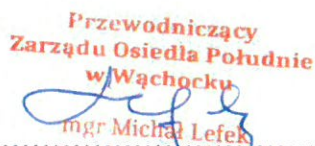 Przewodniczący
Zarządu Osiedla Południe
w Wąchocku
mgr Michał Lefek